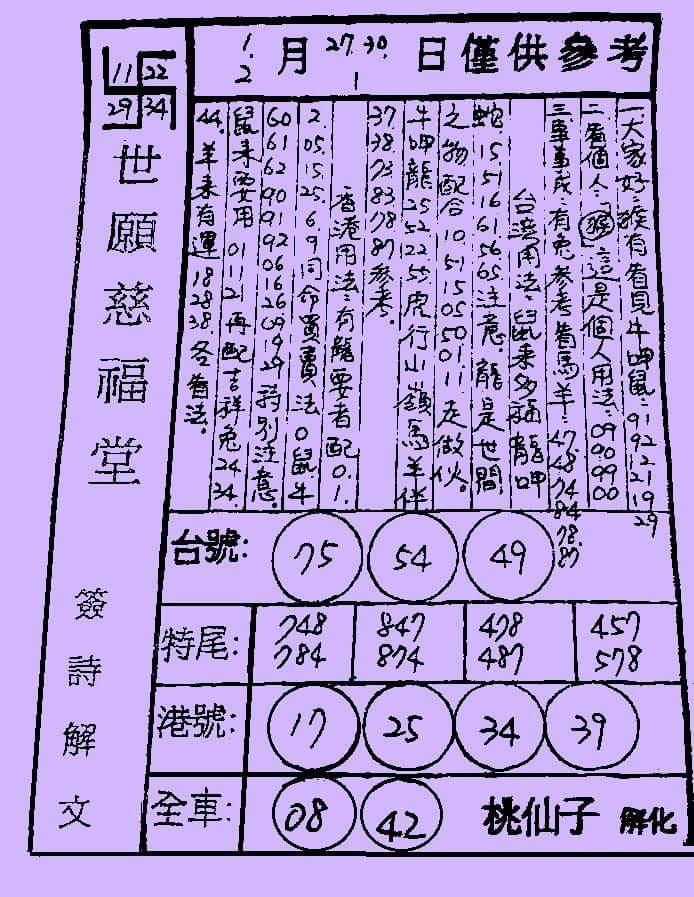 1.2月27.30.1日僅供參考
11 22
29 34
世願慈福堂
簽詩解文
一大家好:猴有看見牛呷鼠:91 92 12 21 19 29
二看個人:猴這是個人用法:09 90 99 00
三車事或:有兔參考看馬羊:47.48.74.84.78.87
台灣用法:鼠來多福龍呷
蛇.15.51.16.61.56.65注意.龍是世間
之物配合10.51.15.05.50.01.11走做伙。
牛呷龍25.52.22.55虎行山嶺馬羊伴
37.38.73.83.78.87參考。
香港用法:有龍要者配0.1.
2.05.15.25.6.9同命買賣法0鼠牛
60 61 62 90 91 92 06 16 26 09 19 29特別注意.
鼠來要用01 11 2再配吉祥兔24.34.
44.羊來有運18.28.38.各看法。
台號: 75 54 49
特尾: 748 847 478 457
784 874 487 578
港號: 17 25 34 39
全車: 08 42 桃仙子 解化